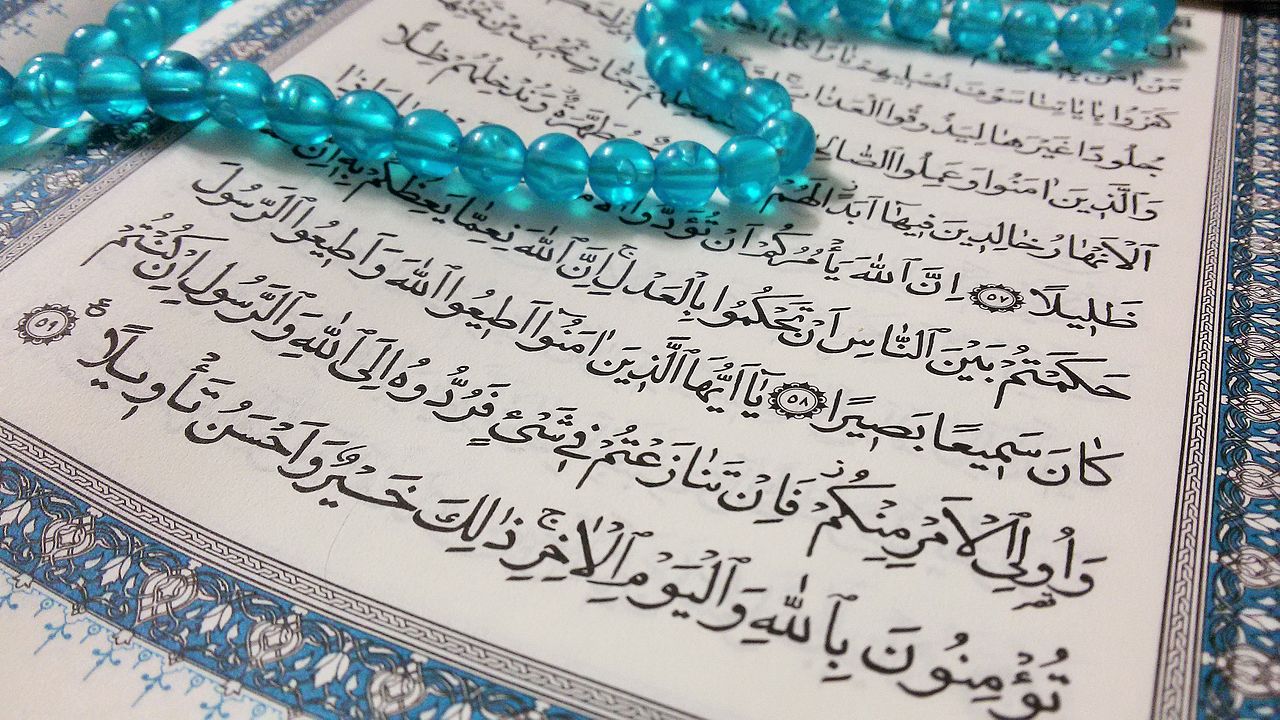 مَنْ اٰمَنَ
كَفَرُوا بِاٰيَاتِنَا سَوْفَ نُصْلِيهِمْ نَارًا كُلَّمَا
جُلُودًا غَيْرَهَا لِيَذُوقُوا الْعَذَابَ
وَالَّذِينَ اٰمَنُوا وَعَمِلُوا الصَّالِحَاتِ جَنَّاتٍ تَجْرِى مِنْ تَحْتِهَا
اَلْاَنْهَارُ خَالِدِينَ فِيهَٓا اَبَدًا لَهُمْ مُطَهَّرَةٌ وَنُدْخِلُهُمْ ظِلًّا
ظَلِيلًا ٥٧ اِنَّ اللّٰهَ يَأْمُرُكُمْ اَنْ تُؤَدُّوا وَاِذَا
حَكَمْتُمْ بَيْنَ النَّاسِ اَنْ تَحْكُمُوا بِالْعَدْلِ اِنَّ اللّٰهَ نِعِمَّا يَعِظُكُمْ بِهِ اِنَّ
كَانَ سَمِيعًا بَصِيرًا ٥٨ يَٓا اَيُّهَا الَّذِينَ اٰمَنُٓوا اَطِيعُوا اللّٰهَ وَاَطِيعُوا الرَّسُولَ
وَاُو۬لِى الْاَمْرِ مِنْكُمْ فَاِنْ تَنَازَعْتُمْ فِى شَىْءٍ فَرُدُّوهُ اِلَى اللّٰهِ وَالرَّسُولِ اِنْ كُنْتُمْ
تُؤْمِنُونَ بِاللّٰهِ وَالْيَوْمِ الْاٰخِرِ ذٰلِكَ خَيْرٌ وَاَحْسَنُ تَأْوِيلًا ٥٩